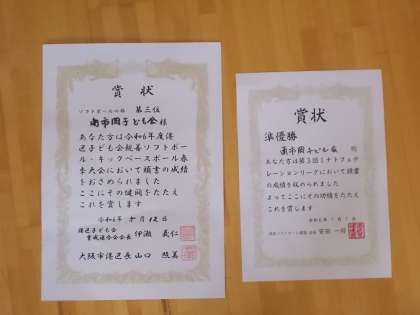 賞状
ソフトボールの部 第三位
南市岡子ども会 様
あなた方は令和6年度港
区子ども会親善ソフトボー
ル・キックベースボール春
季大会において頭書の成績
をおさめられました
ここにその健闘をたたえ
これを賞します
令和6年 月12日
港区子ども会
育成連合会会長 伊瀬 義仁
大阪市港区長 山口 照美
賞状
準優勝
南市岡子ども会 殿
あなた方は第3回ミナトフェデ
レーションリーグにおいて頭書
の成績を収められました
よってここにその功績をたたえ
これを賞します
会長 安田